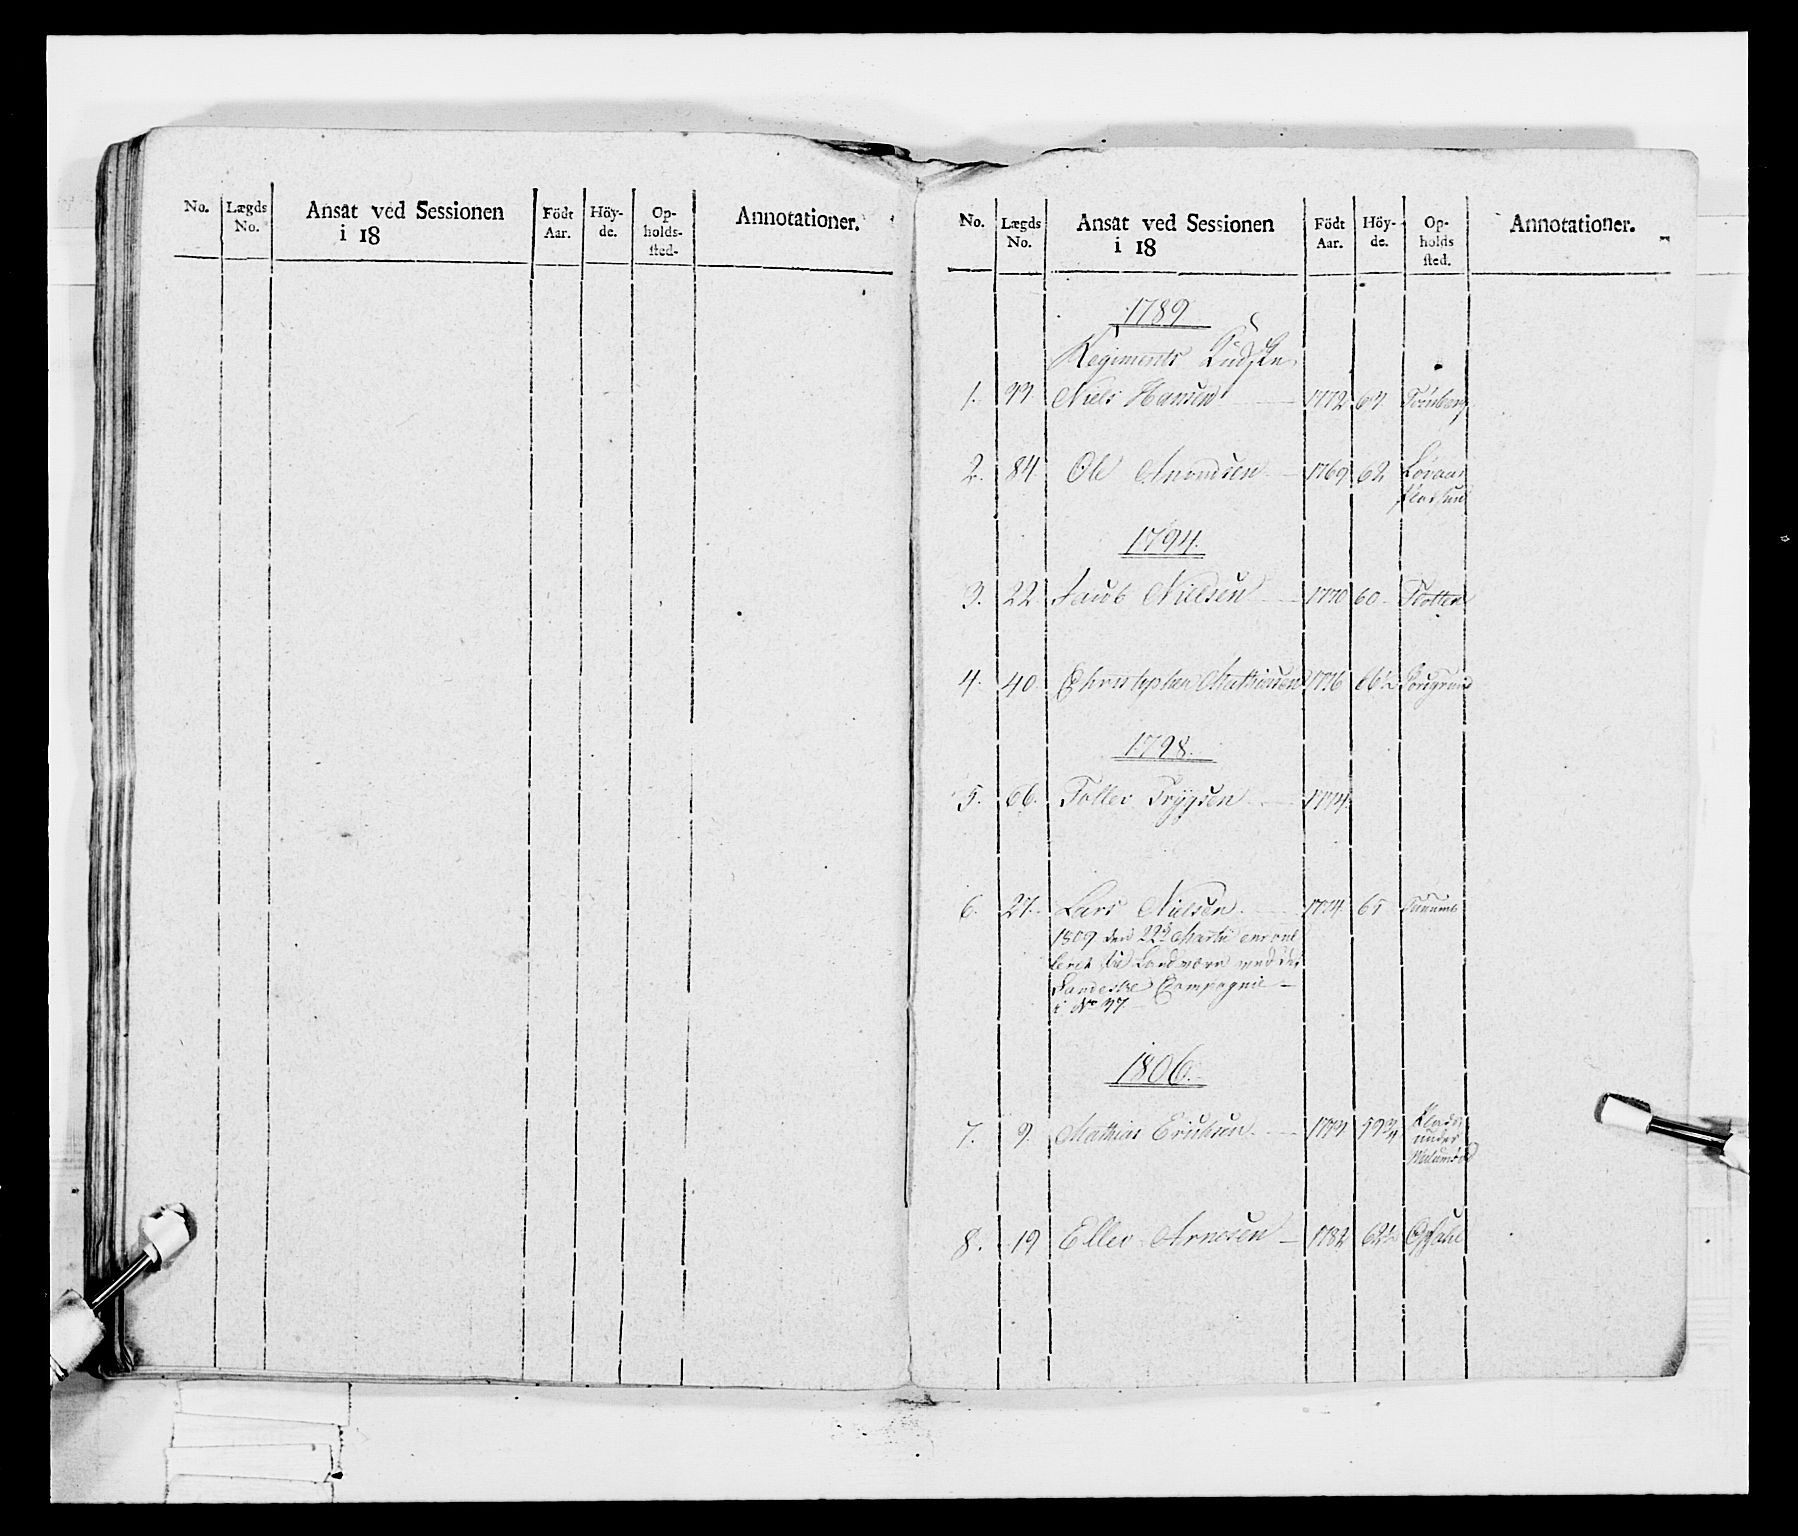 No. Lægds No. Ansat ved Sessionen i 18 Födt Aar. Höy-de. Op-holds-sted- Annotationer.
No. Lægds No. Ansat ved Sessionen i 18 Födt Aar. Höy-de. Op-holds sted. Annotationer.
1789
Regiments Kudske
1. 33 Niels Hansen 1772 64
2. 84 Ole Amundsen 1769 62
1794.
3. 22. Jacob Nielsen 1770 60 Flotten
4. 40 Christopher Mathiesen 1776 66½ Porsgrund
1798.
5. 66. Tollev Trygsen 1774.
6. 27. Lars Nielsen. 1774. 65
1809 den 22d Martii enroul
leret til Landværn ved det
Compagnie
i No 37
1806.
7. 9. Mathias Erichsen 1773 59¾
under
8. 19 Ellev Arnesen 1782 62½ Opdahl